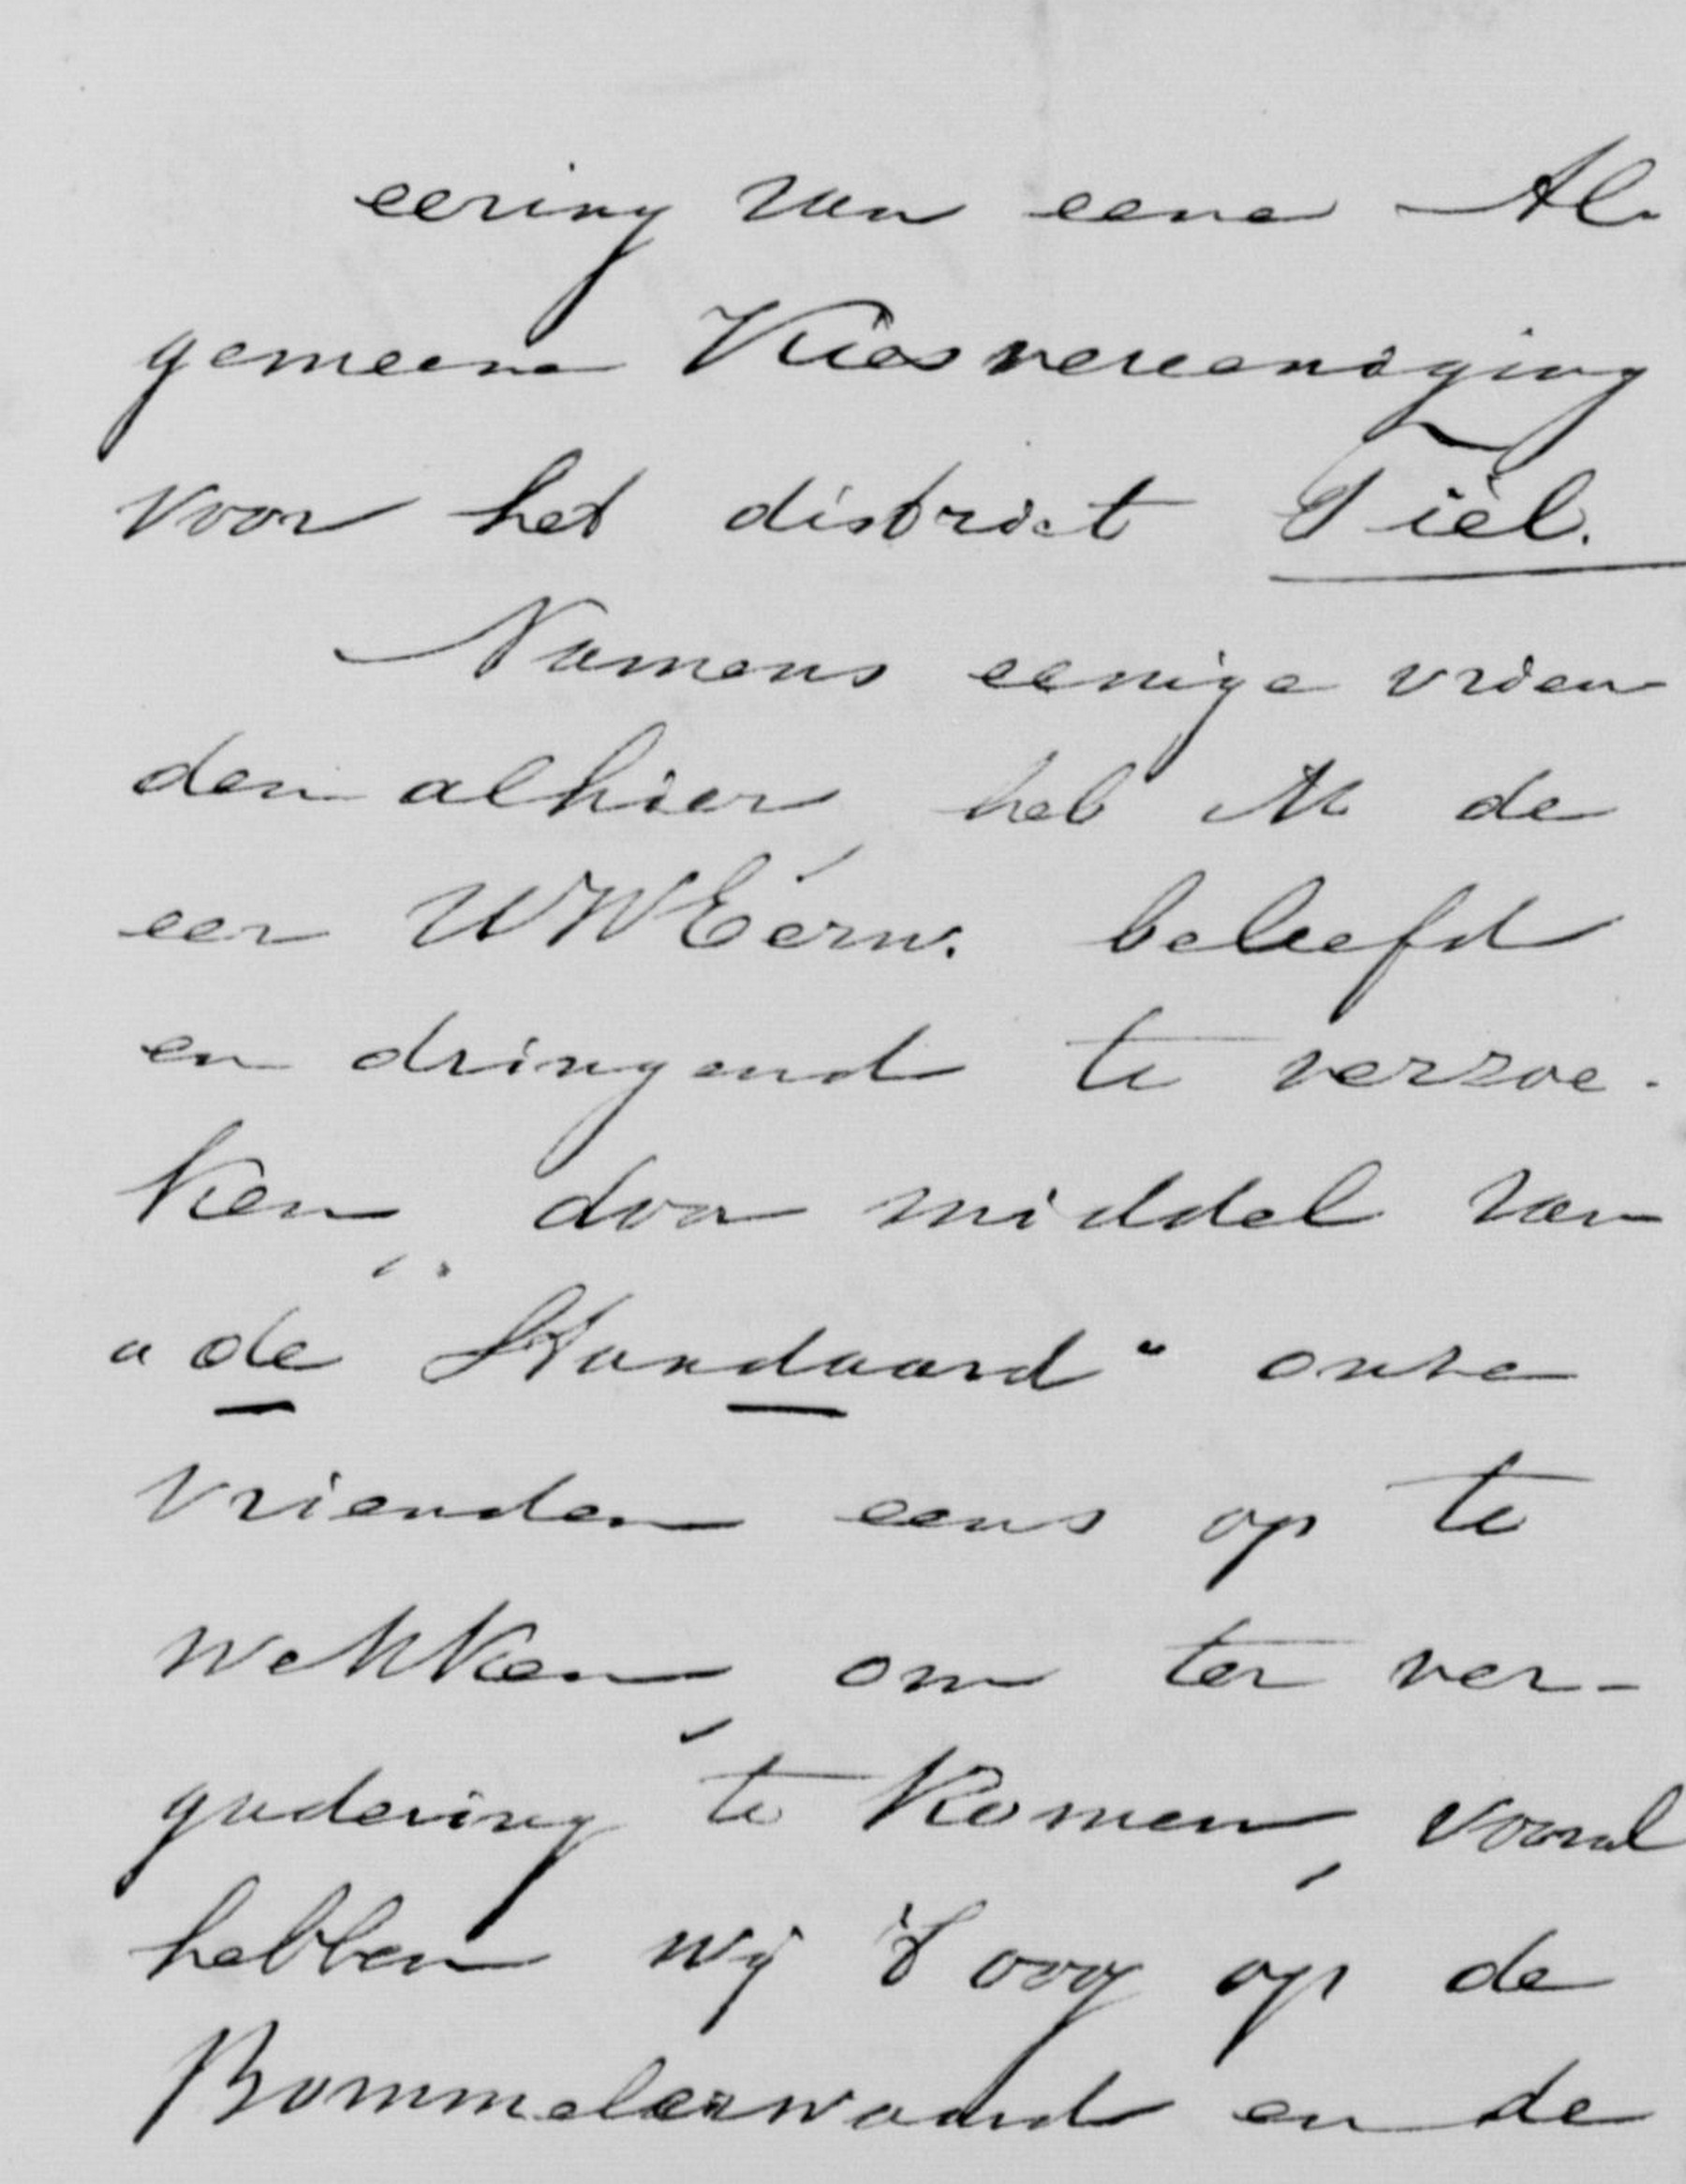 eering van eene Al-
gemeene Kiesvereeniging
voor het district Tiel.
Namens eenige vrien-
den alhier, heb ik de
eer UWEerw. beleefd
en dringend te verzoe-
ken, door middel van
"de Standaard" onze
vrienden eens op te
wekken, om ter ver-
gadering te komen, vooral
hebben wij 't oog op de
Bommelerwaard en de